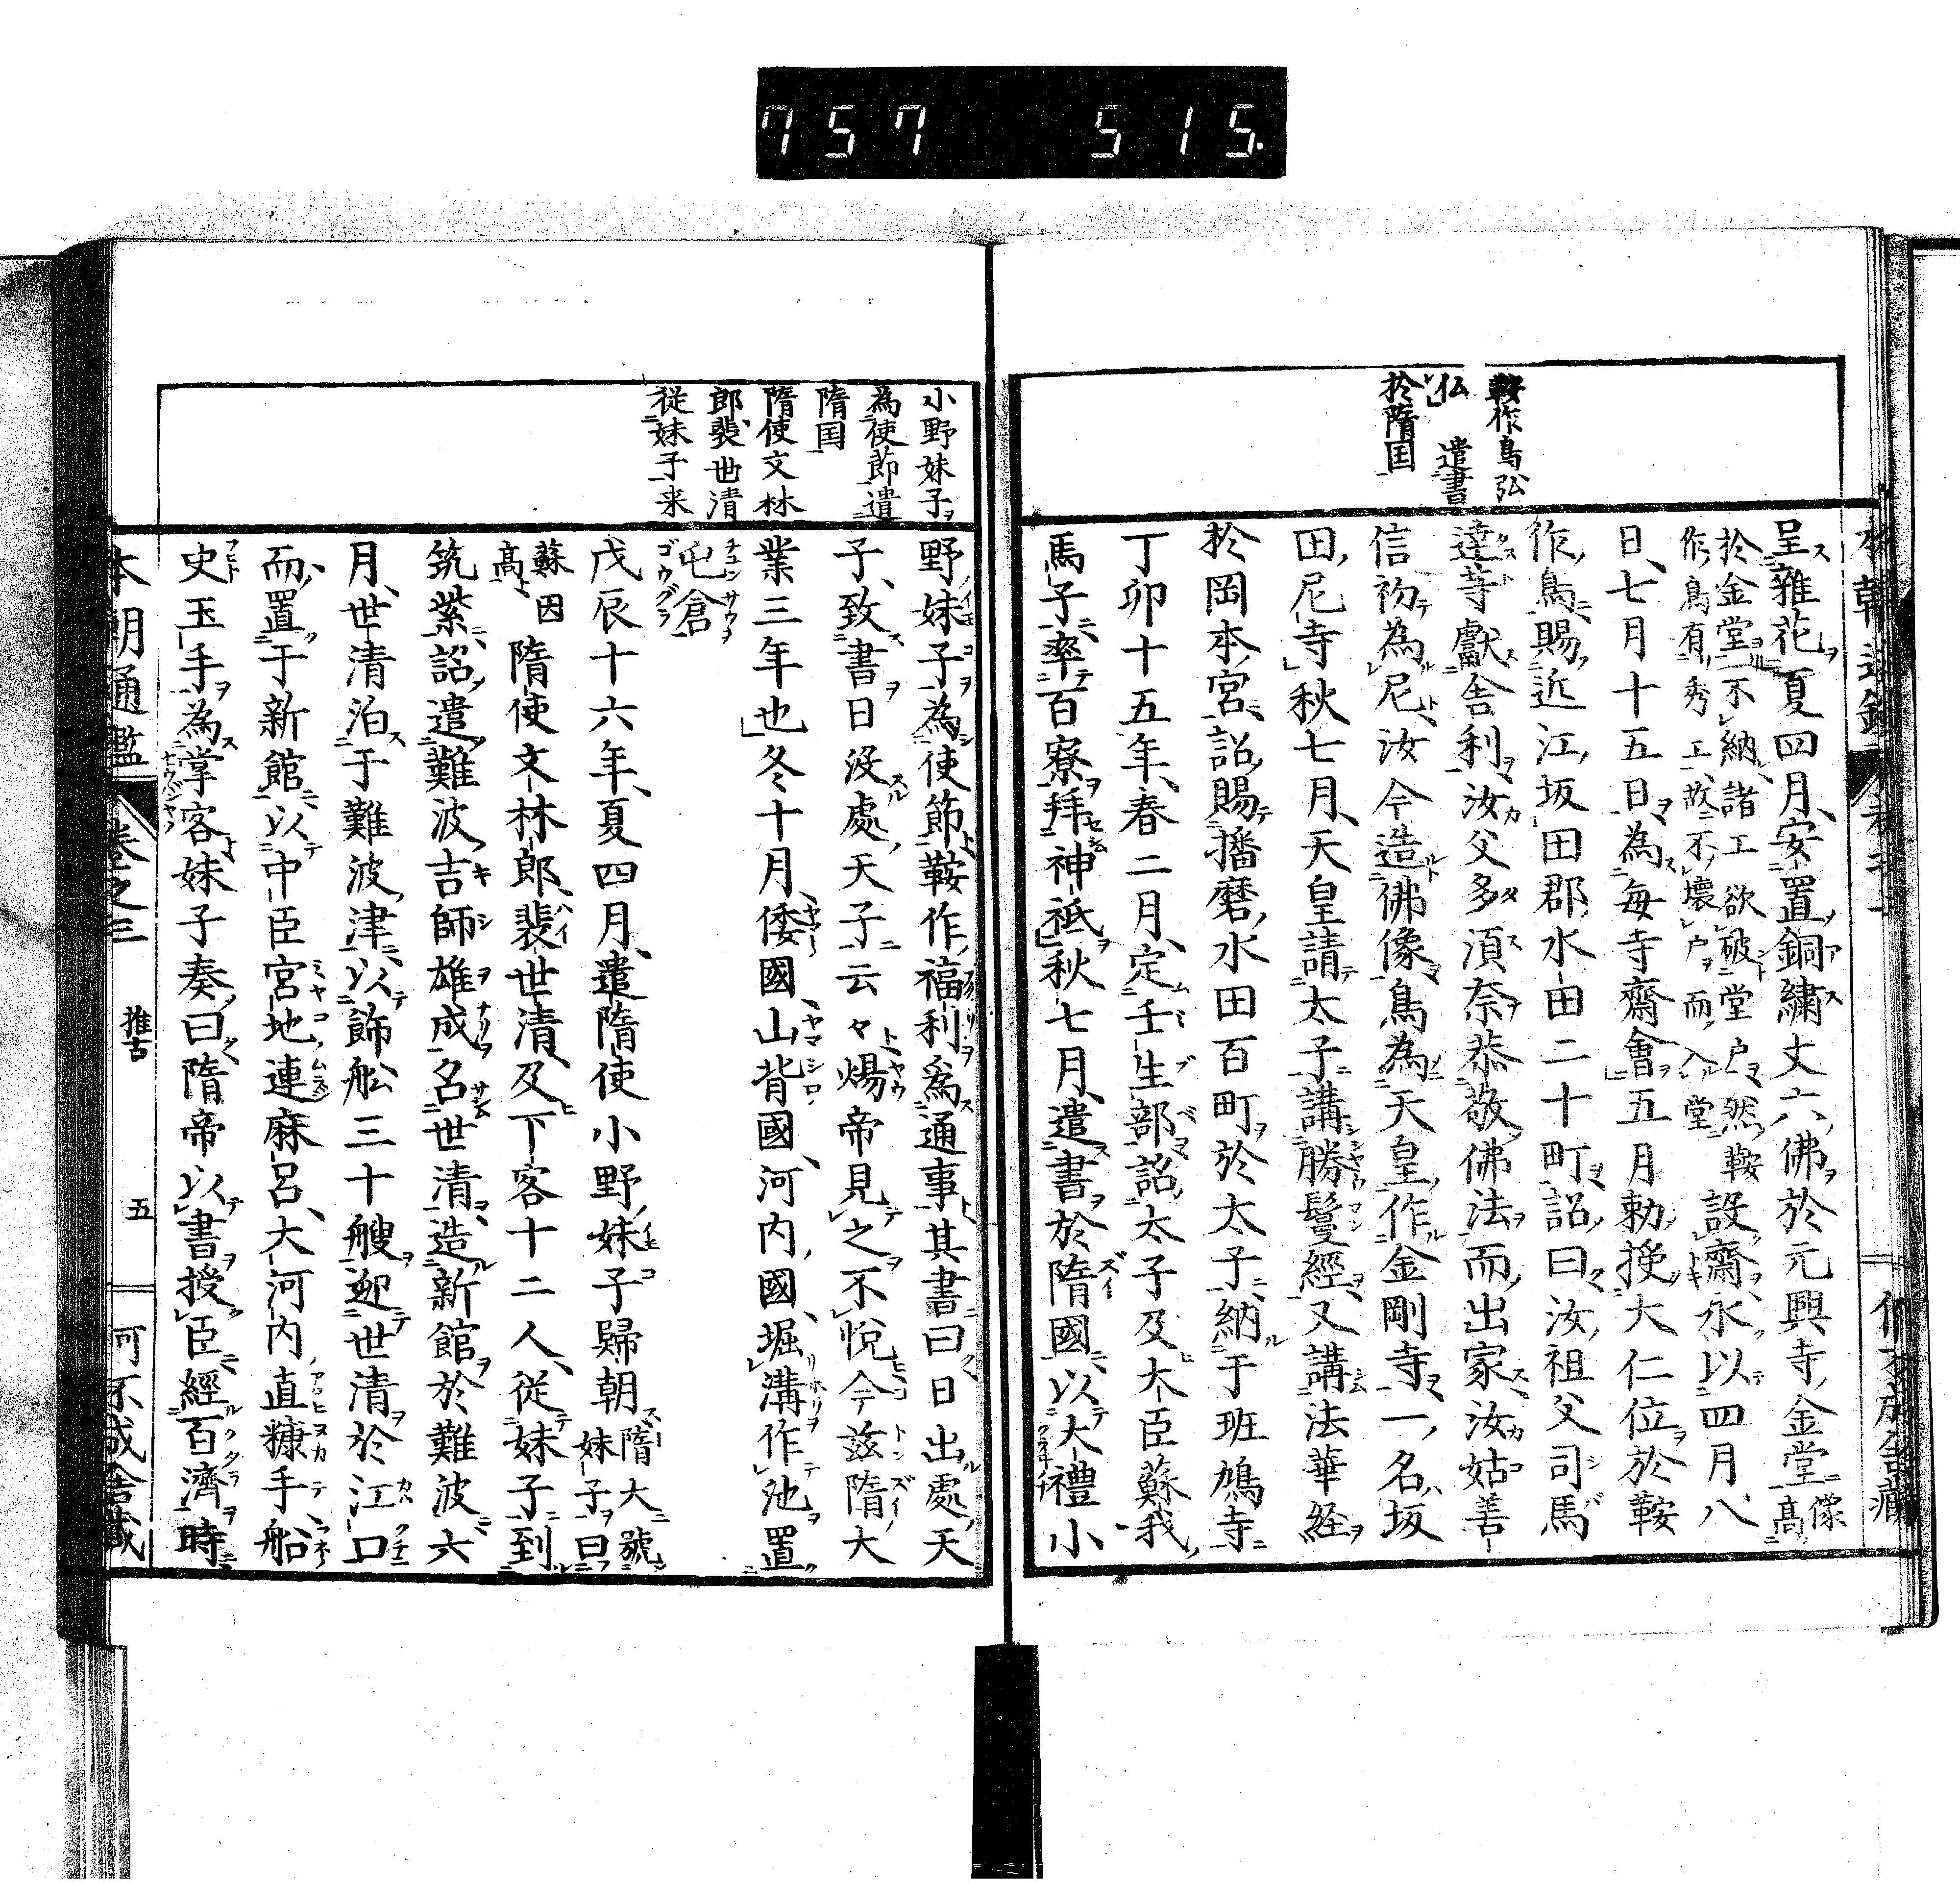 757 515.
鞍作鳥弘
仏 遣書
於隋国
呈雜花夏四月安置銅繍丈六佛於元興寺金堂像高
於金堂不納諸工欲破堂戸然鞍
作鳥有秀工故不壞戸而入堂設齋永以四月八
日七月十五日為毎寺齋會五月勅授大仁位於鞍
作鳥賜近江坂田郡水田二十町詔曰汝祖父司馬
達等獻舎利汝父多須奈恭敬佛法而出家汝姑善
信初為尼汝今造佛像鳥為天皇作金剛寺一名坂
田尼寺秋七月天皇請太子講勝鬘經又講法華経
於岡本宮詔賜播磨水田百町於太子納于班鳩寺
丁卯十五年春二月定壬生部詔太子及大臣蘇我
馬子率百寮拜神祇秋七月遣書於隋國以大禮小
小野妹子
為使節遣
隋国
隋使文林
郎裴世清
従妹子来
野妹子為使節鞍作福利為通事其書曰日出處天
子致書日沒處天子云々煬帝見之不悅今茲隋大
業三年也冬十月倭國山背國河内國堀溝作池置
屯倉
戊辰十六年夏四月遣隋使小野妹子歸朝隋大號妹子曰
蘇因高
隋使文林郎裴世清及下客十二人從妹子到
筑紫詔遣難波吉師雄成名世清造新館於難波六
月世清泊于難波津以飾舩三十艘迎世清於江口
而置于新館以中臣宮地連麻呂大河内直糠手船
史玉手為掌客妹子奏曰隋帝以書授臣經百濟時
本朝通鑑 卷之三 推古 五